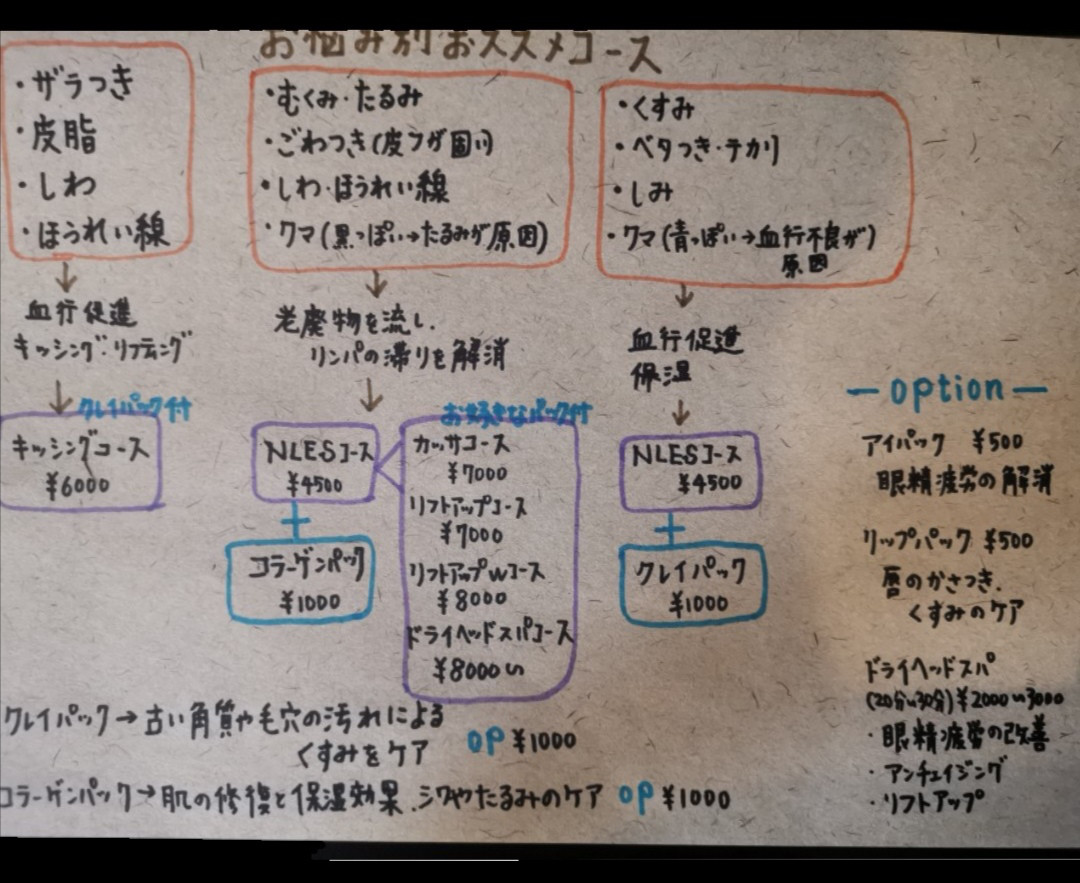 お悩み別おススメコース
・ザラつき
・皮脂
・しわ
・ほうれい線
血行促進
キッシング・リフティング
クレイパック付
キッシングコース
¥6000
・むくみ・たるみ
・ごわつき(皮フが固い)
・しわ・ほうれい線
・クマ(黒っぽい→たるみが原因)
老廃物を流し、
リンパの滞りを解消
NLESコース
¥4500
+
コラーゲンパック
¥1000
お好きなパック付
カッサコース
¥7000
リフトアップコース
¥7000
リフトアップWコース
¥8000
ドライヘッドスパコース
¥8000〜
・くすみ
・ベタつき・テカリ
・しみ
・クマ(青っぽい→血行不良が)
原因
血行促進
保湿
NLESコース
¥4500
+
クレイパック
¥1000
— option —
アイパック ¥500
眼精疲労の解消
リップパック ¥500
唇のかさつき、
くすみのケア
ドライヘッドスパ
(20分〜30分)¥2000〜3000
・眼精疲労の改善
・アンチエイジング
・リフトアップ
クレイパック→古い角質や毛穴の汚れによる
くすみをケア OP ¥1000
コラーゲンパック→肌の修復と保湿効果、シワやたるみのケア OP ¥1000